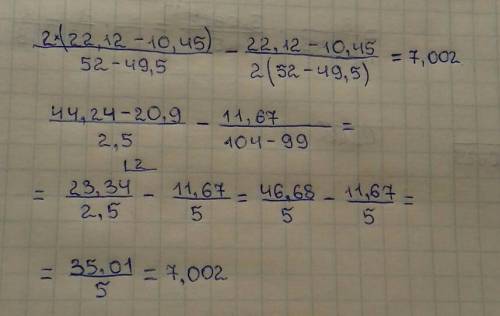 2*(22,12-10,45)/52-49,5 - 22,12-10,45/2(52-49,5) = 7,002
44,24-20,9/2,5 - 11,67/104-99 =
= 23,34/2,5 ⌊2 - 11,67/5 = 46,68/5 - 11,67/5 =
= 35,01/5 = 7,002